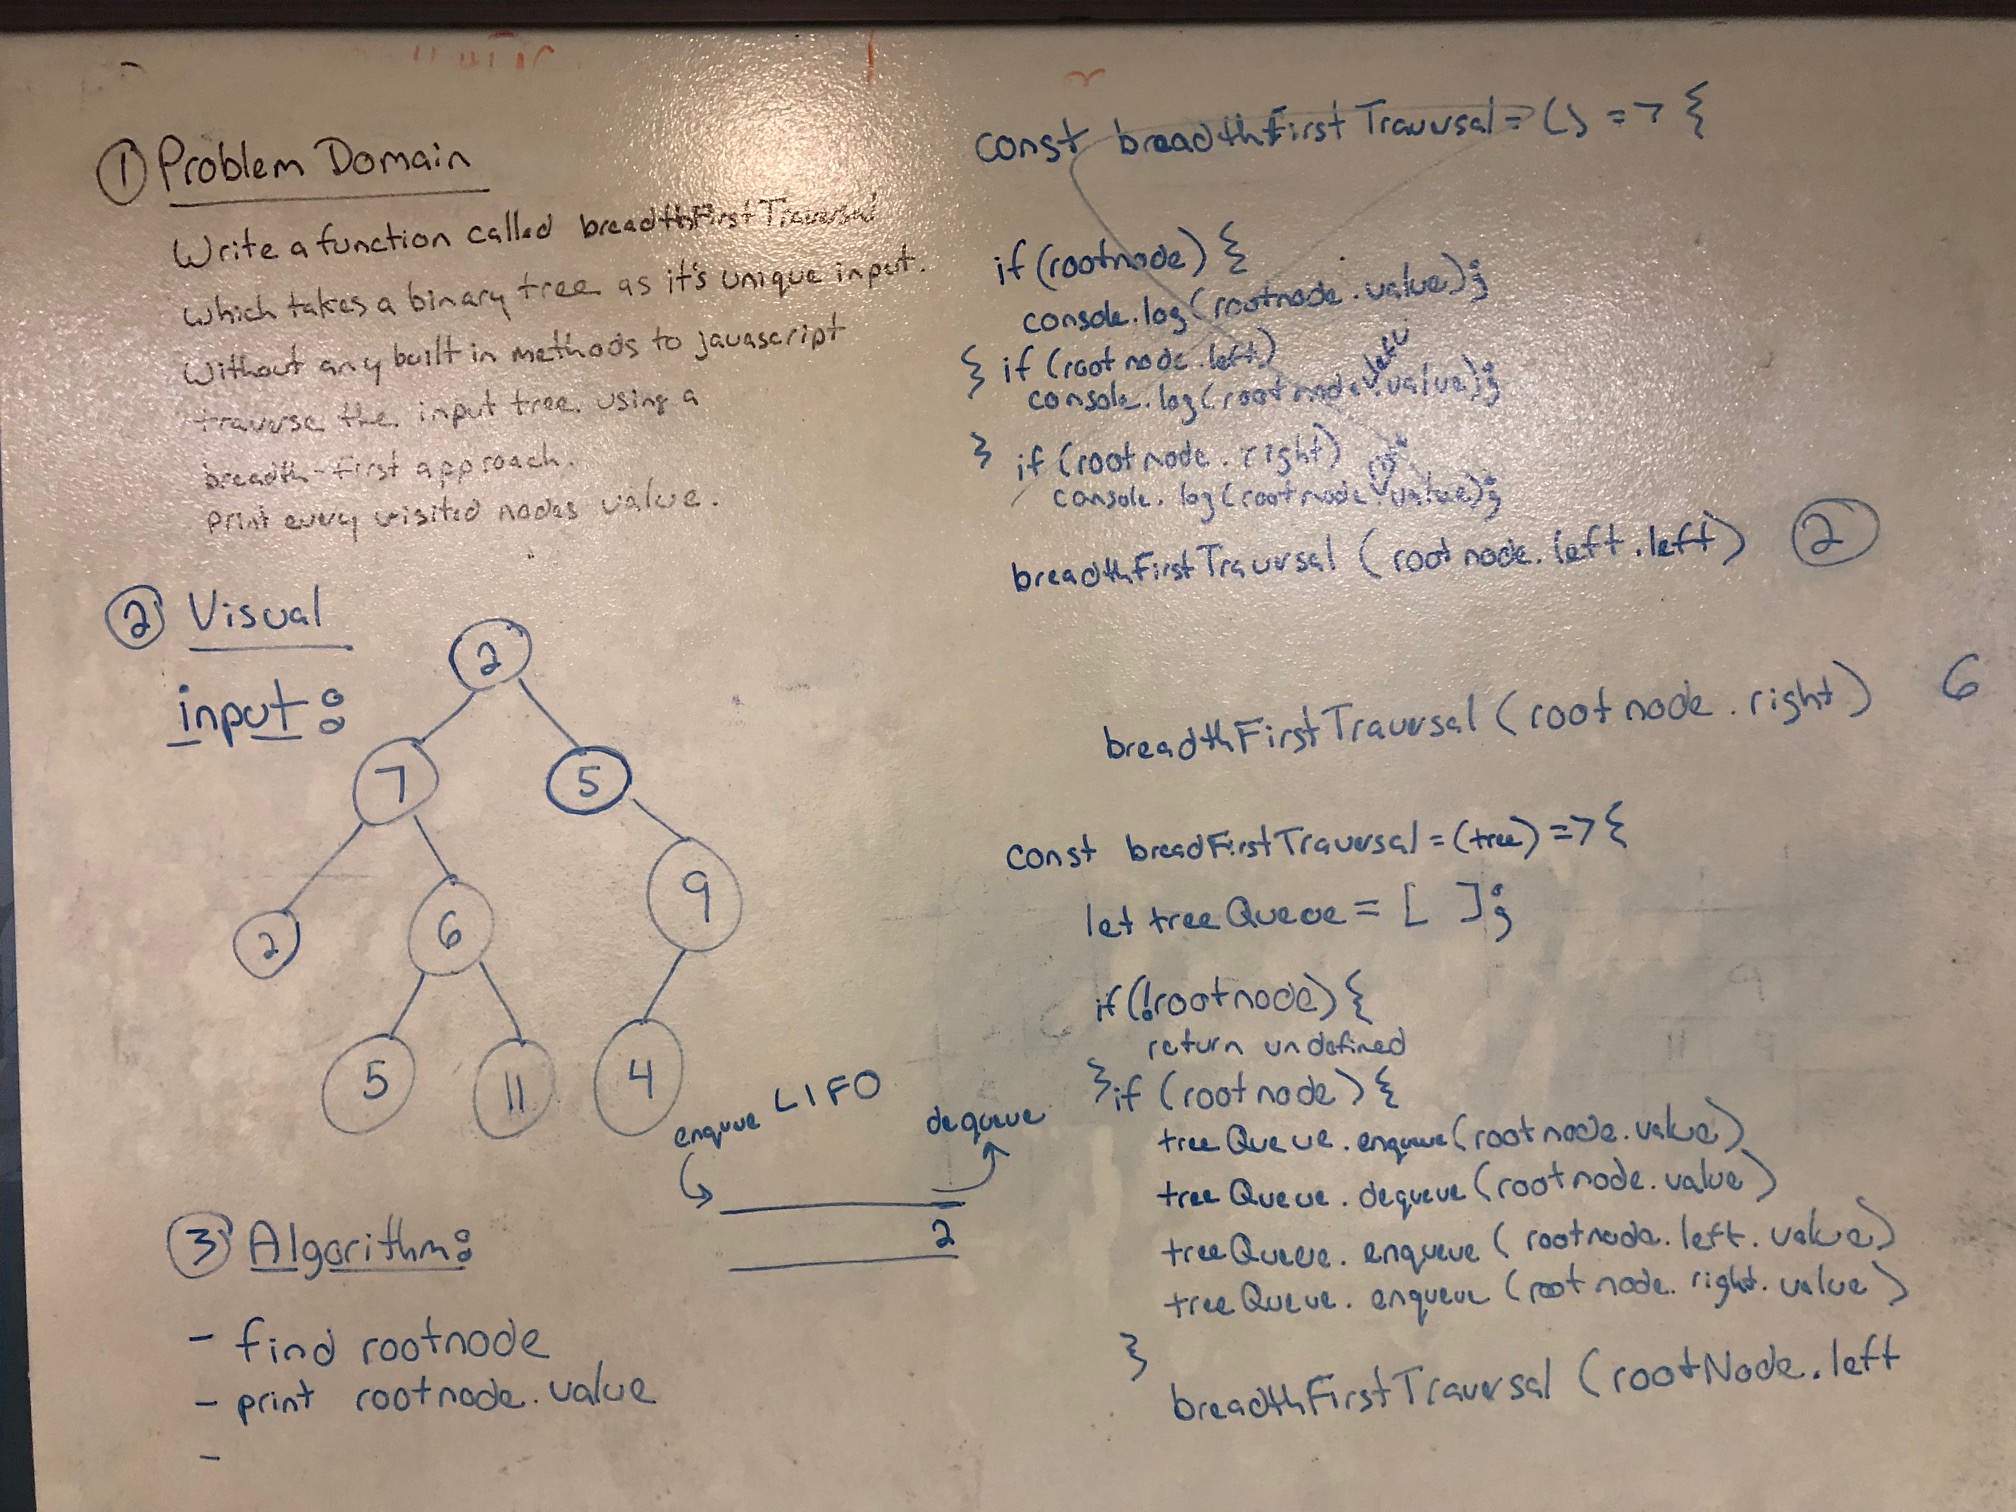 ① Problem Domain
Write a function called breadthFirstTraversal
which takes a binary tree as it's unique input.
Without any built in methods to javascript
traverse the input tree using a
breadth-first approach.
print every visited nodes value.
② Visual
input:
2
7 5
2 6 9
5 11 4
enqueue LIFO dequeue
2
③ Algorithm:
- find rootnode
- print rootnode.value
-
const breadthFirstTraversal = () => {
if (rootnode) {
console.log(rootnode.value);
} if (rootnode.left)
console.log(rootnode.left.value);
} if (rootnode.right)
console.log(rootnode.value);
breadthFirstTraversal (rootnode.left.left) ②
breadthFirstTraversal (rootnode.right) 6
const breadFirstTraversal = (tree) => {
let treeQueue = [ ];
if (!rootnode) {
return undefined
} if (rootnode) {
treeQueue.enqueue(rootnode.value)
treeQueue.dequeue(rootnode.value)
treeQueue.enqueue(rootnode.left.value)
treeQueue.enqueue(rootnode.right.value)
}
breadthFirstTraversal (rootNode.left